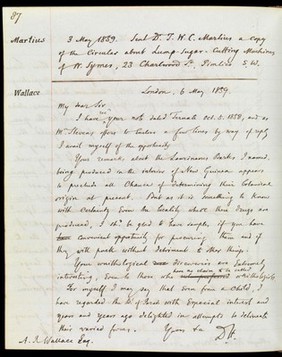 87
Martius
3 May 1859. Sent Dr. T. W. C. Martius a copy
of the Circular about Lump-Sugar-Cutting Machines
of W. Symes, 23 Charlwood St. Pimlico S.W.
Wallace
London, 6 May 1859.
My dear Sir,
I have your note dated Ternate Oct. 5. 1858, and as
Mr. Stevens offers to enclose a few lines by way of reply
I avail myself of the opportunity.
Your remarks about the Laurineous Barks I named,
being produced in the interior of New Guinea appears
to preclude all chance of determining their botanical
origin at present. But as it is something to know
with certainty even the locality where these drugs are
produced, I shd. be glad to have samples if you have
convenient opportunity for procuring them and if
they with people without detriment to other things.
Your ornithological discoveries are intensely
interesting, even to those who have no claim to be called ornithologists
For myself I may say that even from a child, I
have regarded the B. of Parad. with especial interest and
years and years ago delighted in attempts to delineate
their varied forms. Yours &c
DH.
A. R. Wallace Esq.